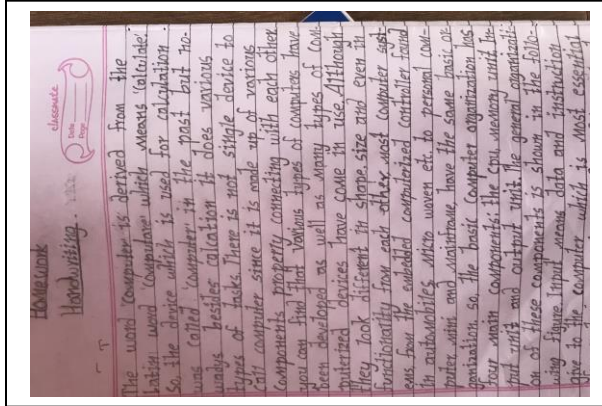 classmate
Date
Page
Homework
Handwriting.
The word 'computer is derived from the
Latin word 'computare' which means 'calculate'.
So, the device which is used for calculation
was called 'computer' in the past but no-
wadays besides calcation it does various
types of tasks. There is not single device to
call computer since it is made up of various
components properly connecting with each other
you can find that various types of computers have
been developed as well as many types of com-
puterized devices have came in use. Although
they look different in shape, size and even in
functionality from each other most computer syst-
ems from the embedded computerized controller found
in automobiles micro woven etc. to personal com-
puter mini and Mainframe, have the same basic or-
ganization. so, the basic computer organization has
four main components: the cpu, memory unit In-
put unit and output unit. The general organizati-
on of these components is shown in the follo-
wing figure. Input means data and instruction
give to the computer which is most essential